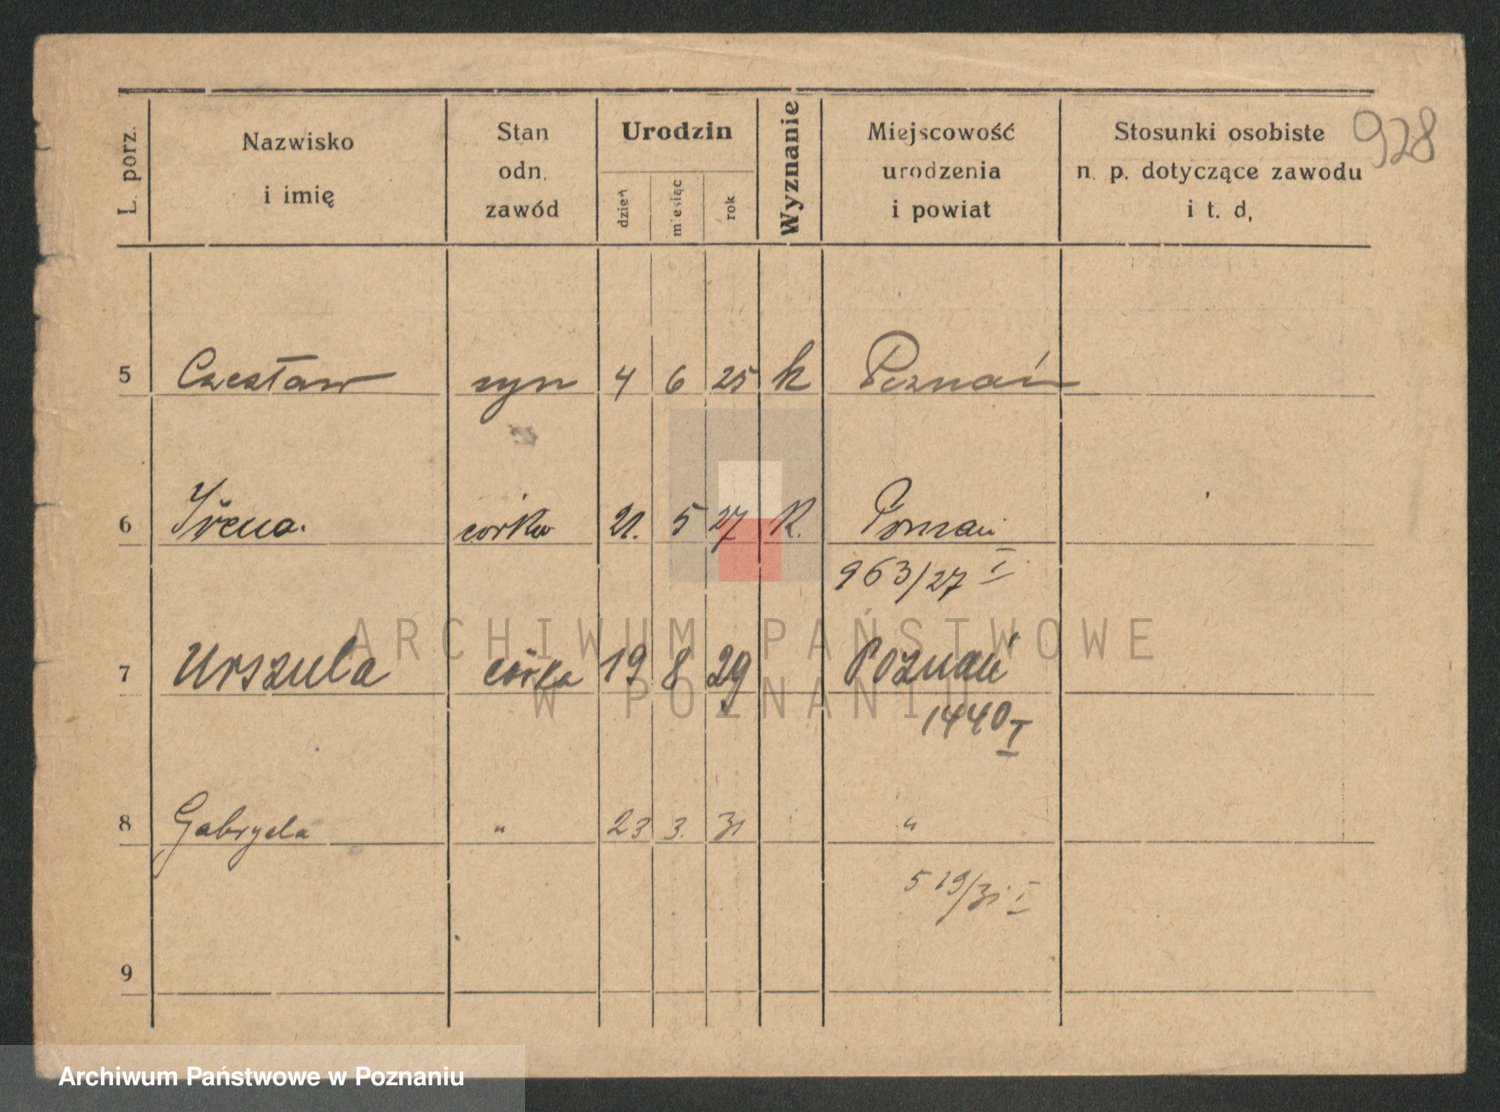 928
L. porz. Nazwisko i imię Stan odn. zawód Urodzin dzień miesiąc rok Wyznanie Miejscowość urodzenia i powiat Stosunki osobiste n. p. dotyczące zawodu i t. d,
5 Czesław syn 4 6 25 k Poznań
6 Irena. corka 21. 5 27 k. Poznań
963/27 I
7 Urszula córka 19 8 29 Poznań
1440 I
8 Gabryela " 23 3. 31 "
519/31 I
9
ARCHIWUM PAŃSTWOWE
W POZNANIU
Archiwum Państwowe w Poznaniu